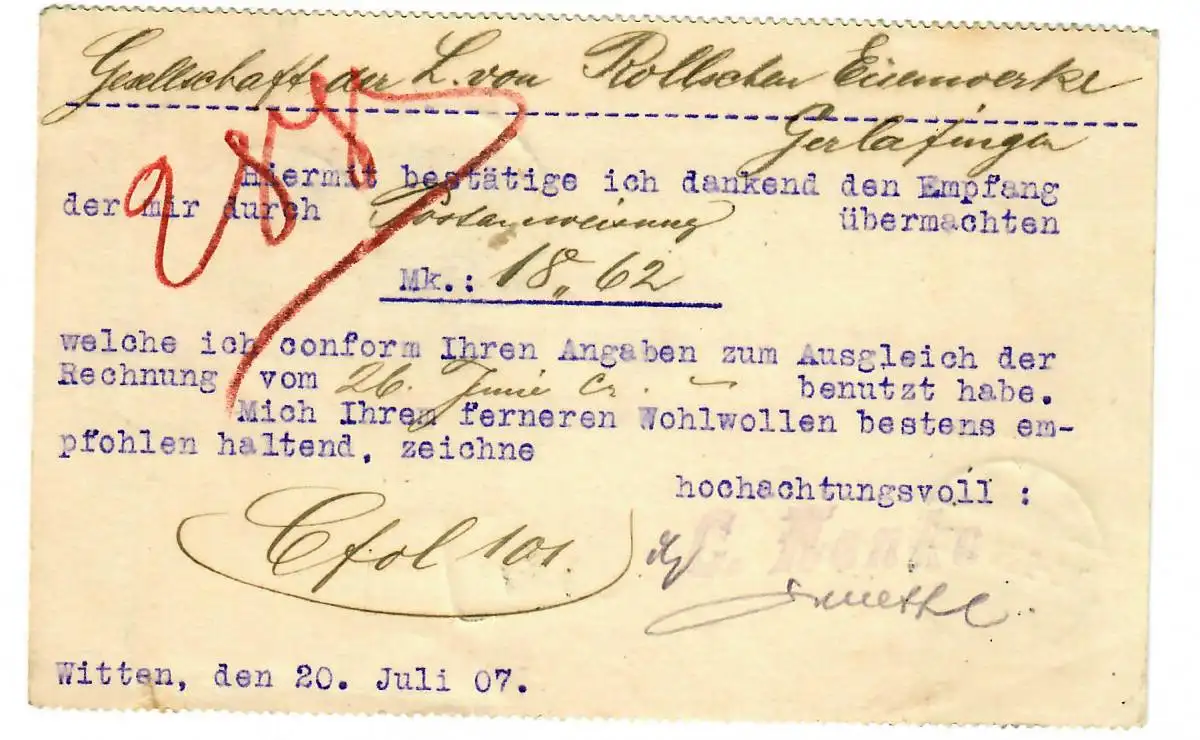 Gesellschaft der L. von Rollschen Eisenwerke
Gerlafingen
Hiermit bestätige ich dankend den Empfang
der mir durch Postanweisung übermachten
Mk.: 18,, 62
welche ich conform Ihren Angaben zum Ausgleich der
Rechnung vom 26. Juni cr. benutzt habe.
Mich Ihrem ferneren Wohlwollen bestens em-
pfohlen haltend, zeichne
hochachtungsvoll :
Cfol 101.
Witten, den 20. Juli 07.